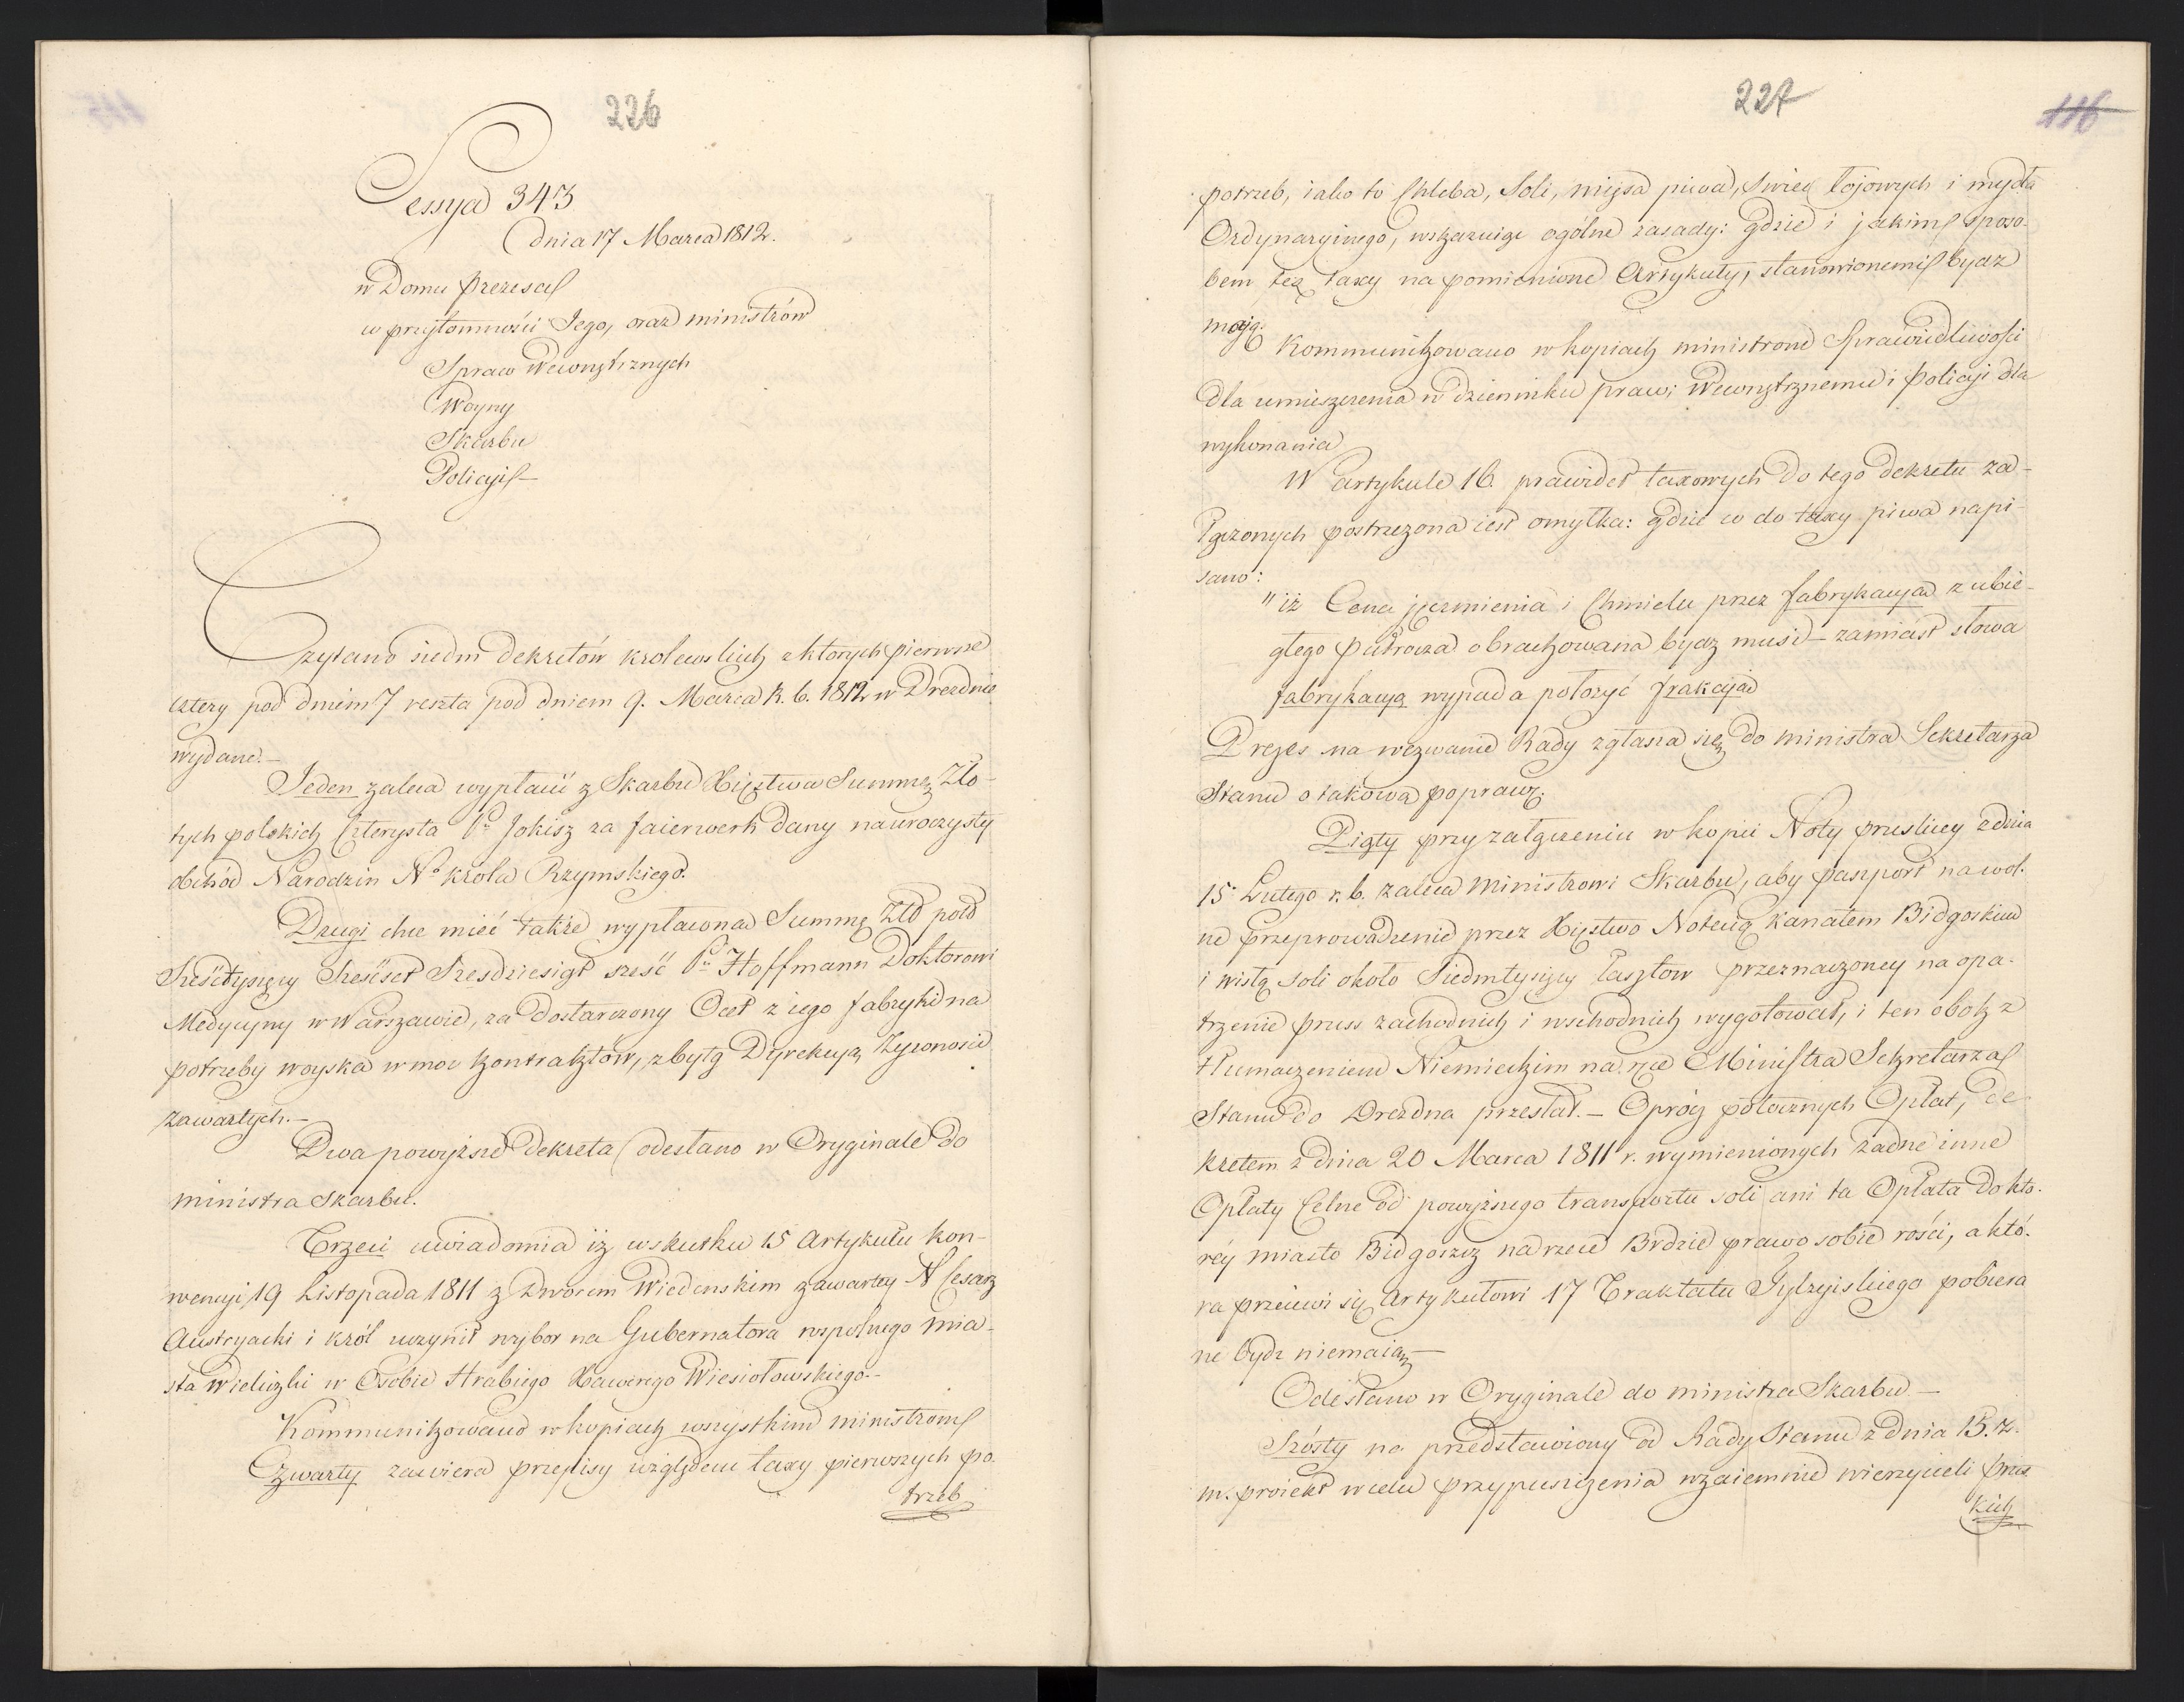 226
Sessya 343
dnia 17 Marca 1812.
w Domu Prezesa
w przytomności Jego, oraz ministrów
Spraw Wewnętrznych
Woyny
Skarbu
Policyi
Czytano siedm Dekretów krolewskich z ktorych pierwsze
cztery pod dniem 7 reszta pod dniem 9. Marca R. b. 1812 w Dreznie
wydane.—
Jeden zaleca wypłacić z Skarbu Xięztwa Summę Zło-
tych polskich Czterysta Pu Jokisz za faierwerk dany na uroczysty
obchód Narodzin No Króla Rzymskiego.
Drugi chce mieć także wypłaconą Summę Zło pols
Sześćtysięcy Sześćset Szesdziesiąt sześć Pu Hoffmann Doktorowi
Medycyny w Warszawie, za dostarczony Ocet z iego fabryki na
potrzeby woyska w moc kontraktow, z byłą Dyrekcyą Żywności
zawartych.—
Dwa powyższe Dekreta odesłano w Oryginale do
ministra Skarbu.
Trzeci uwiadomia iż w skutku 15 Artykułu Kon-
wencyi 19 Listopada 1811 z Dworem Wiedenskim zawartey N Cesarz
Austryacki i król uczynił wybor na Gubernatora wspolnego mia-
sta Wieliczki w Osobie Hrabiego Xawerego Wiesiołowskiego.—
Kommunikowano w kopiach wszystkim ministrom
Czwarty zawiera przepisy względem taxy pierwszych po-
trzeb
227
116
potrzeb, iako to Chleba, Soli, mięsa piwa, Swiec łojowych i mydła
Ordynaryinego, wskazuiąc ogólne zasady: gdzie i jakim sposo-
bem też taxy na pomienione Artykuły, stanowionemi bydz
mają.
Kommunikowano w kopiach ministrom Sprawiedliwości
dla umieszczenia w dzienniku praw; Wewnętrznemu i Policyi dla
wykonania
W artykule 16. prawideł taxowych do tego dekretu za-
łączonych postrzeżona iest omyłka: gdzie co do taxy piwa napi-
sano:
"iż Cena jęczmienia i Chmielu przez fabrykacyą z ubie-
głego półrocza obrachowana bydz musi — zamiast słowa
fabrykacyą wypada położyć frakcyą
Prezes na wezwanie Rady zgłasza się do ministra Sekretarza
Stanu o takową poprawę.
Piąty przy załączeniu w kopii Noty pruskiey z dnia
15. Lutego r. b. zaleca Ministrowi Skarbu, aby paszport na wol-
ne przeprowadzenie przez Xięstwo Notecią kanałem Bidgoskim
i wisłą soli około Siedmtysięcy Łasztow przeznaczoney na opa-
trzenie pruss zachodnich i wschodnich wygotował, i ten obok z
tłumaczeniem Niemieckim na ręce Ministra Sekretarza
Stanu do Drezdna przesłał.— Opróc potocznych Opłat, De-
kretem z dnia 20 Marca 1811 r. wymienionych żadne inne
Opłaty Celne od powyższego transportu soli ani ta Opłata do któ-
rey miasto Bidgoszcz na rzece Brdzie prawo sobie rości, a któ-
ra przeciwi się Artykułowi 17 Traktatu Tylżyiskiego pobiera-
ne bydz niemaią —
Odesłano w Oryginale do ministra Skarbu —
Szósty na przedstawiony od Rady Stanu z dnia 15. z.
m. proiekt w celu przypuszczenia wzaiemnie wierzycieli prus-
kich